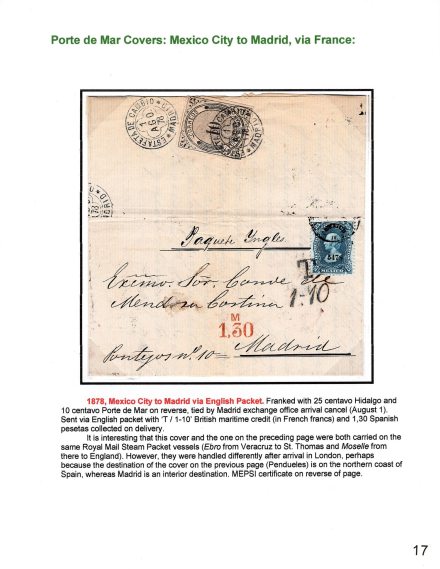 Porte de Mar Covers: Mexico City to Madrid, via France:
ESTAFETA DE CAMBIO * MADRID *
1
AGO
78
10
Paquete Ingles.
MEXICO
T
1-10
Exмо. Sor. Conde de
Mendoza Cortina
M
1,30
Pontejos nº 10 = Madrid
1878, Mexico City to Madrid via English Packet. Franked with 25 centavo Hidalgo and
10 centavo Porte de Mar on reverse, tied by Madrid exchange office arrival cancel (August 1).
Sent via English packet with 'T / 1-10' British maritime credit (in French francs) and 1,30 Spanish
pesetas collected on delivery.
It is interesting that this cover and the one on the preceding page were both carried on the
same Royal Mail Steam Packet vessels (Ebro from Veracruz to St. Thomas and Moselle from
there to England). However, they were handled differently after arrival in London, perhaps
because the destination of the cover on the previous page (Pendueles) is on the northern coast of
Spain, whereas Madrid is an interior destination. MEPSI certificate on reverse of page.
17